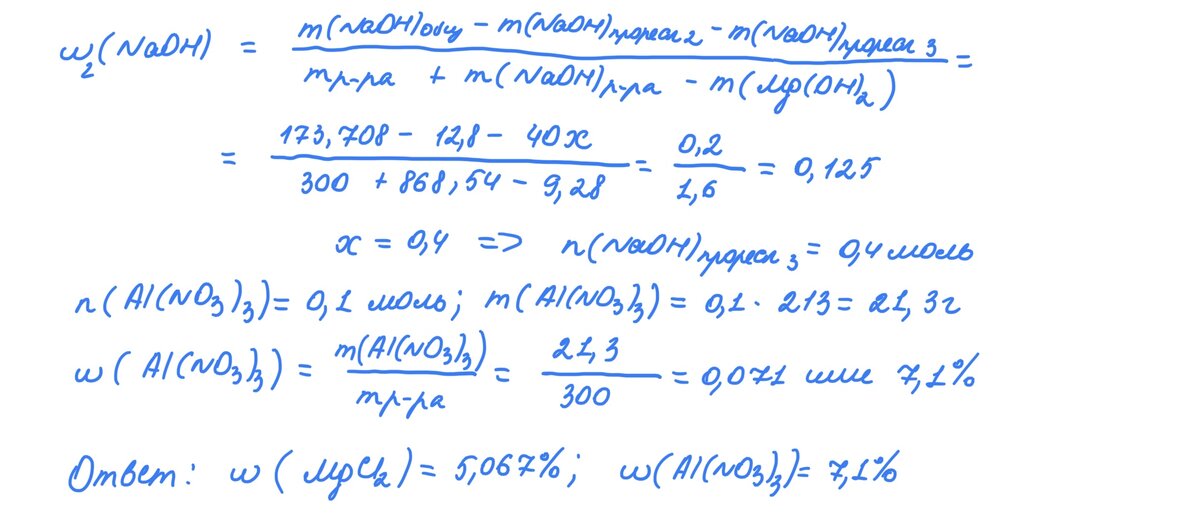 w₂(NaOH) = (m(NaOH)общ − m(NaOH)прореаг 2 − m(NaOH)прореаг 3) / (mр-ра + m(NaOH)р-ра − m(Mg(OH)₂)) =
= (173,708 − 12,8 − 40x) / (300 + 868,54 − 9,28) = 0,2 / 1,6 = 0,125
x = 0,4 => n(NaOH)прореаг 3 = 0,4 моль
n(Al(NO₃)₃) = 0,1 моль; m(Al(NO₃)₃) = 0,1 · 213 = 21,3г
w(Al(NO₃)₃) = m(Al(NO₃)₃) / mр-ра = 21,3 / 300 = 0,071 или 7,1%
Ответ: w(MgCl₂) = 5,067%; w(Al(NO₃)₃) = 7,1%